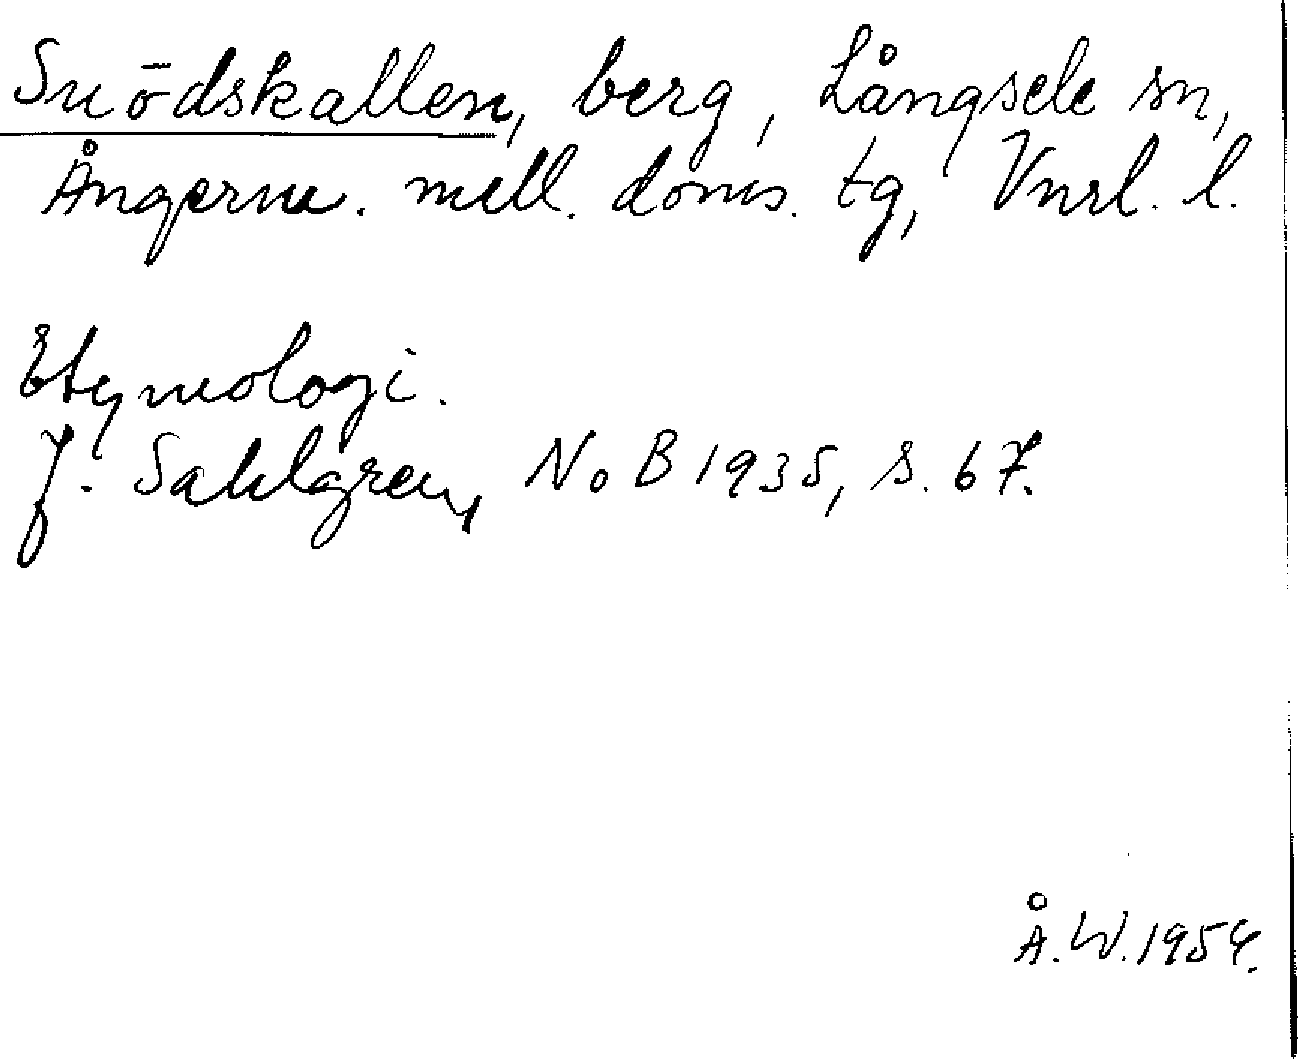 Snödskallen, berg, Långsele sn,
Ångerm. mell. doms. tg, Vnrl. l.
Etymologi.
J. Sahlgren, NoB 1935, s. 67.
Å.W. 1954.